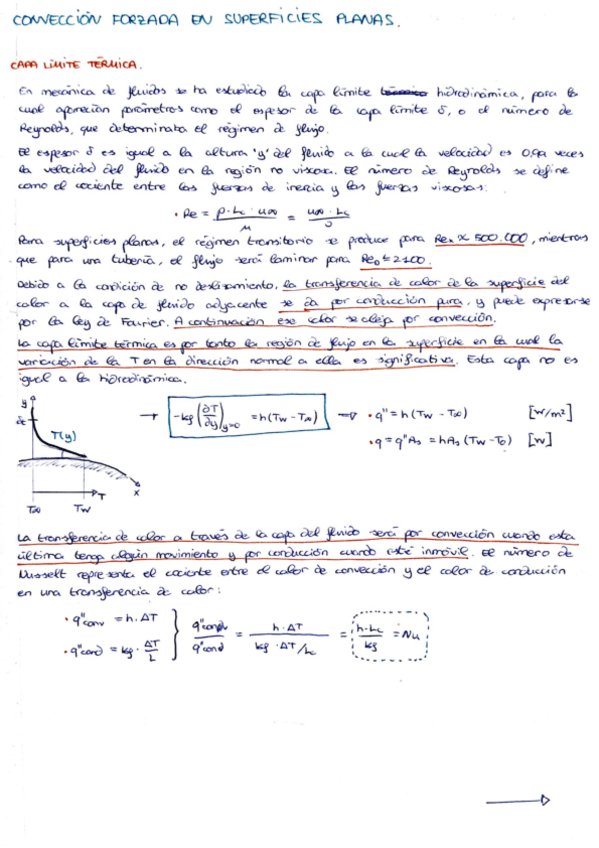 CONVECCIÓN FORZADA EN SUPERFICIES PLANAS.
CAPA LÍMITE TÉRMICA.
En mecánica de fluidos se ha estudiado la capa límite hidrodinámica, para la
cual aparecían parámetros como el espesor de la capa límite δ, o el número de
Reynolds, que determinaba el régimen de flujo.
El espesor δ es igual a la altura 'y' del fluido a la cual la velocidad es 0,99 veces
la velocidad del fluido en la región no viscosa. El número de Reynolds se define
como el cociente entre las fuerzas de inercia y las fuerzas viscosas:
• Re = ρ·Lc·u∞ / μ = u∞·Lc / ν
Para superficies planas, el régimen transitorio se produce para Rex ≈ 500.000, mientras
que para una tubería, el flujo será laminar para ReD ≤ 2400.
Debido a la condición de no deslizamiento, la transferencia de calor de la superficie del
calor a la capa de fluido adyacente se da por conducción pura, y puede expresarse
por la ley de Fourier. A continuación ese calor se aleja por convección.
La capa límite térmica es por tanto la región de flujo en la superficie en la cual la
variación de la T en la dirección normal a ella es significativa. Esta capa no es
igual a la hidrodinámica.
y
δt
T(y)
T
x
T∞ Tw
→ -kf (∂T/∂y)y=0 = h(Tw - T∞) → • q'' = h(Tw - T∞) [W/m²]
• q = q''As = hAs (Tw - T0) [W]
La transferencia de calor a través de la capa del fluido será por convección cuando esta
última tenga algún movimiento y por conducción cuando esté inmóvil. El número de
Nusselt representa el cociente entre el calor de convección y el calor de conducción
en una transferencia de calor:
• q''conv = h·ΔT
• q''cond = kf · ΔT/L
q''conv / q''cond = h·ΔT / kf·ΔT/Lc = h·Lc / kf = Nu